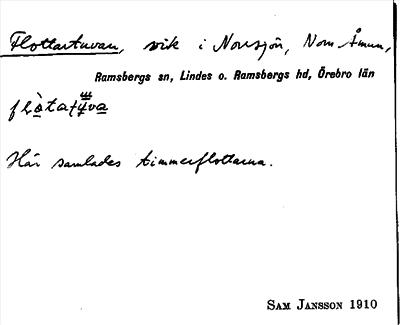 Flottartuvan, vik i Norrsjön, Norr Åmun,
Ramsbergs sn, Lindes o. Ramsbergs hd, Örebro län
Här samlades timmerflottarna.
SAM JANSSON 1910